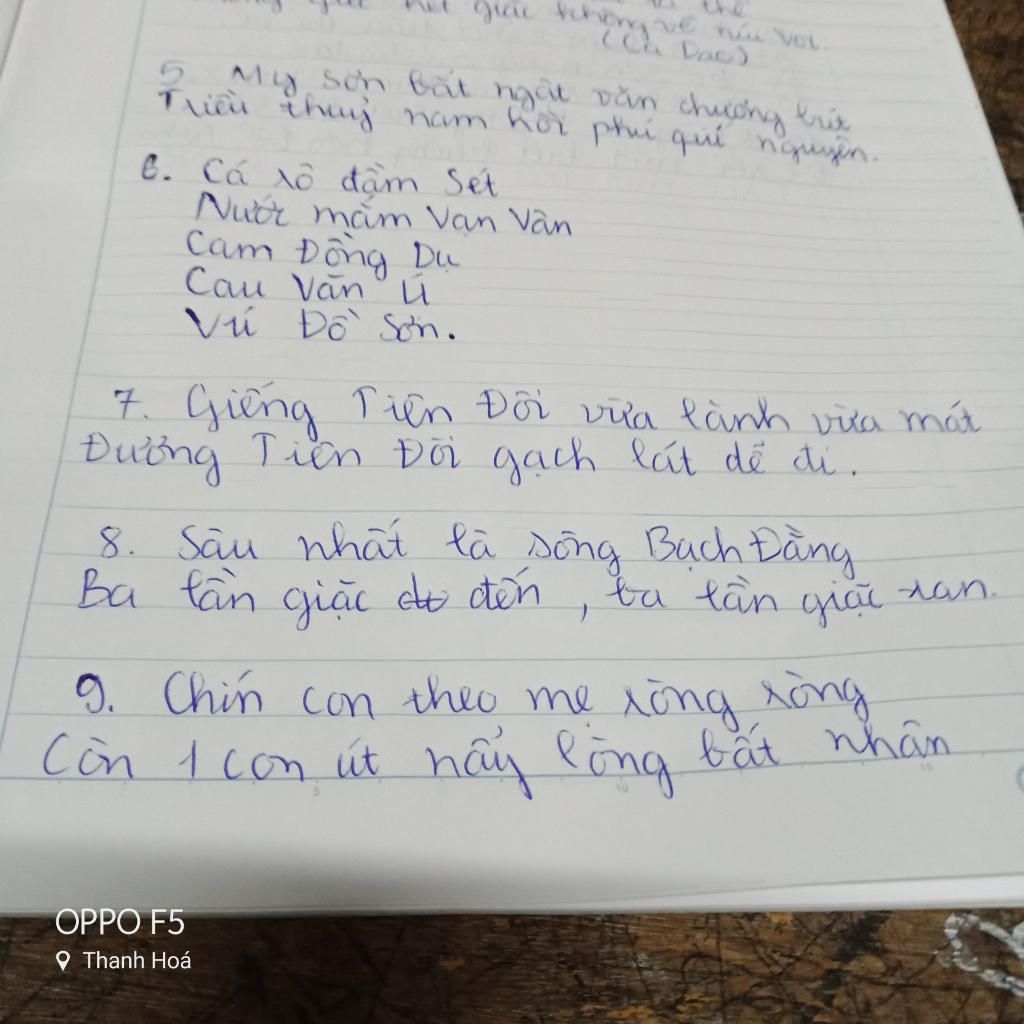 giặc không về núi Voi.
(Ca Dao)
5. My Sơn bất ngât văn chương bút
Triều thuỷ nam hồi phú quí nguyên.
6. Cá rô đầm Sét
Nước mắm Vạn Vân
Cam Đồng Dụ
Cau Văn Ú
Vú Đồ Sơn.
7. Giếng Tiên Đôi vừa lành vừa mát
Đường Tiên Đôi gạch lát dễ đi.
8. Sâu nhất là sông Bạch Đằng
Ba lần giặc đến, ba lần giặc tan.
9. Chín con theo mẹ ròng ròng
Còn 1 con út nẩy lòng bất nhân
OPPO F5
Thanh Hoá